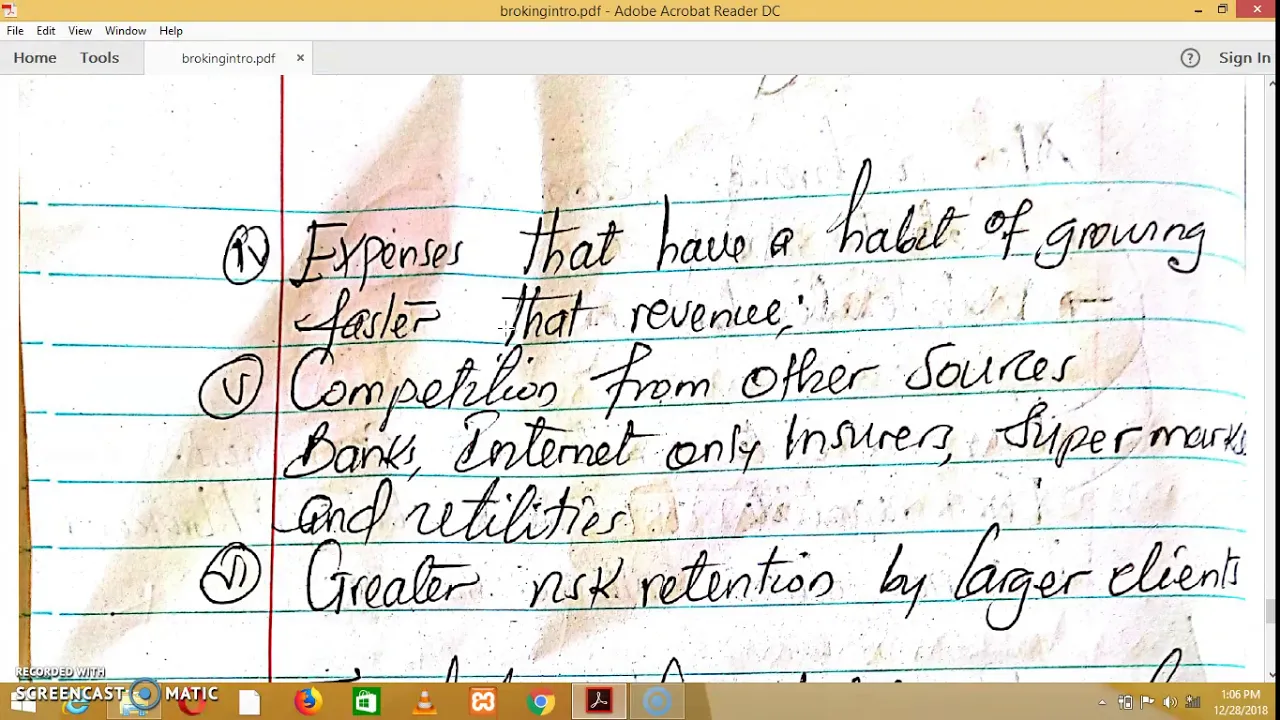 brokingintro.pdf - Adobe Acrobat Reader DC
File Edit View Window Help
Home Tools brokingintro.pdf × ? Sign In
(iv) Expenses that have a habit of growing
faster that revenue;
(v) Competition from other Sources
Banks, Internet only Insurers, Supermarks
and utilities
(vi) Greater risk retention by larger clients
RECORDED WITH
SCREENCAST MATIC
1:06 PM
12/28/2018